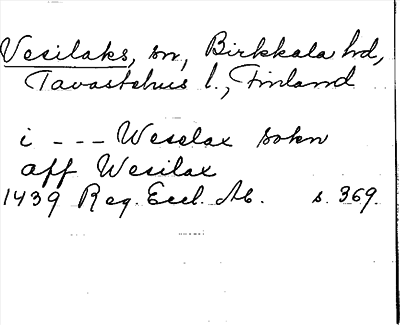 Vesilaks, sn, Birkkala hd,
Tavastehus l., Finland
i - - - Weselax sokn
aff Wesilax
1439 Reg. Eccl. Ab. s. 369.